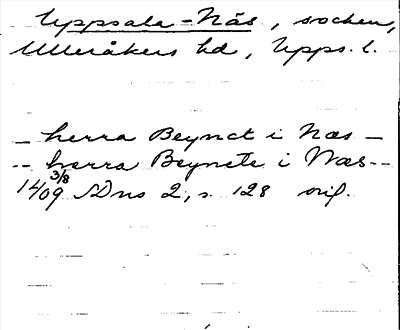 Uppsala-Näs, socken,
Ulleråkers hd, Upps. l.
– herra Beynct i Næs –
-- herra Beyncte i Næs --
14 3/8 09 SDns 2, s. 128 orig.